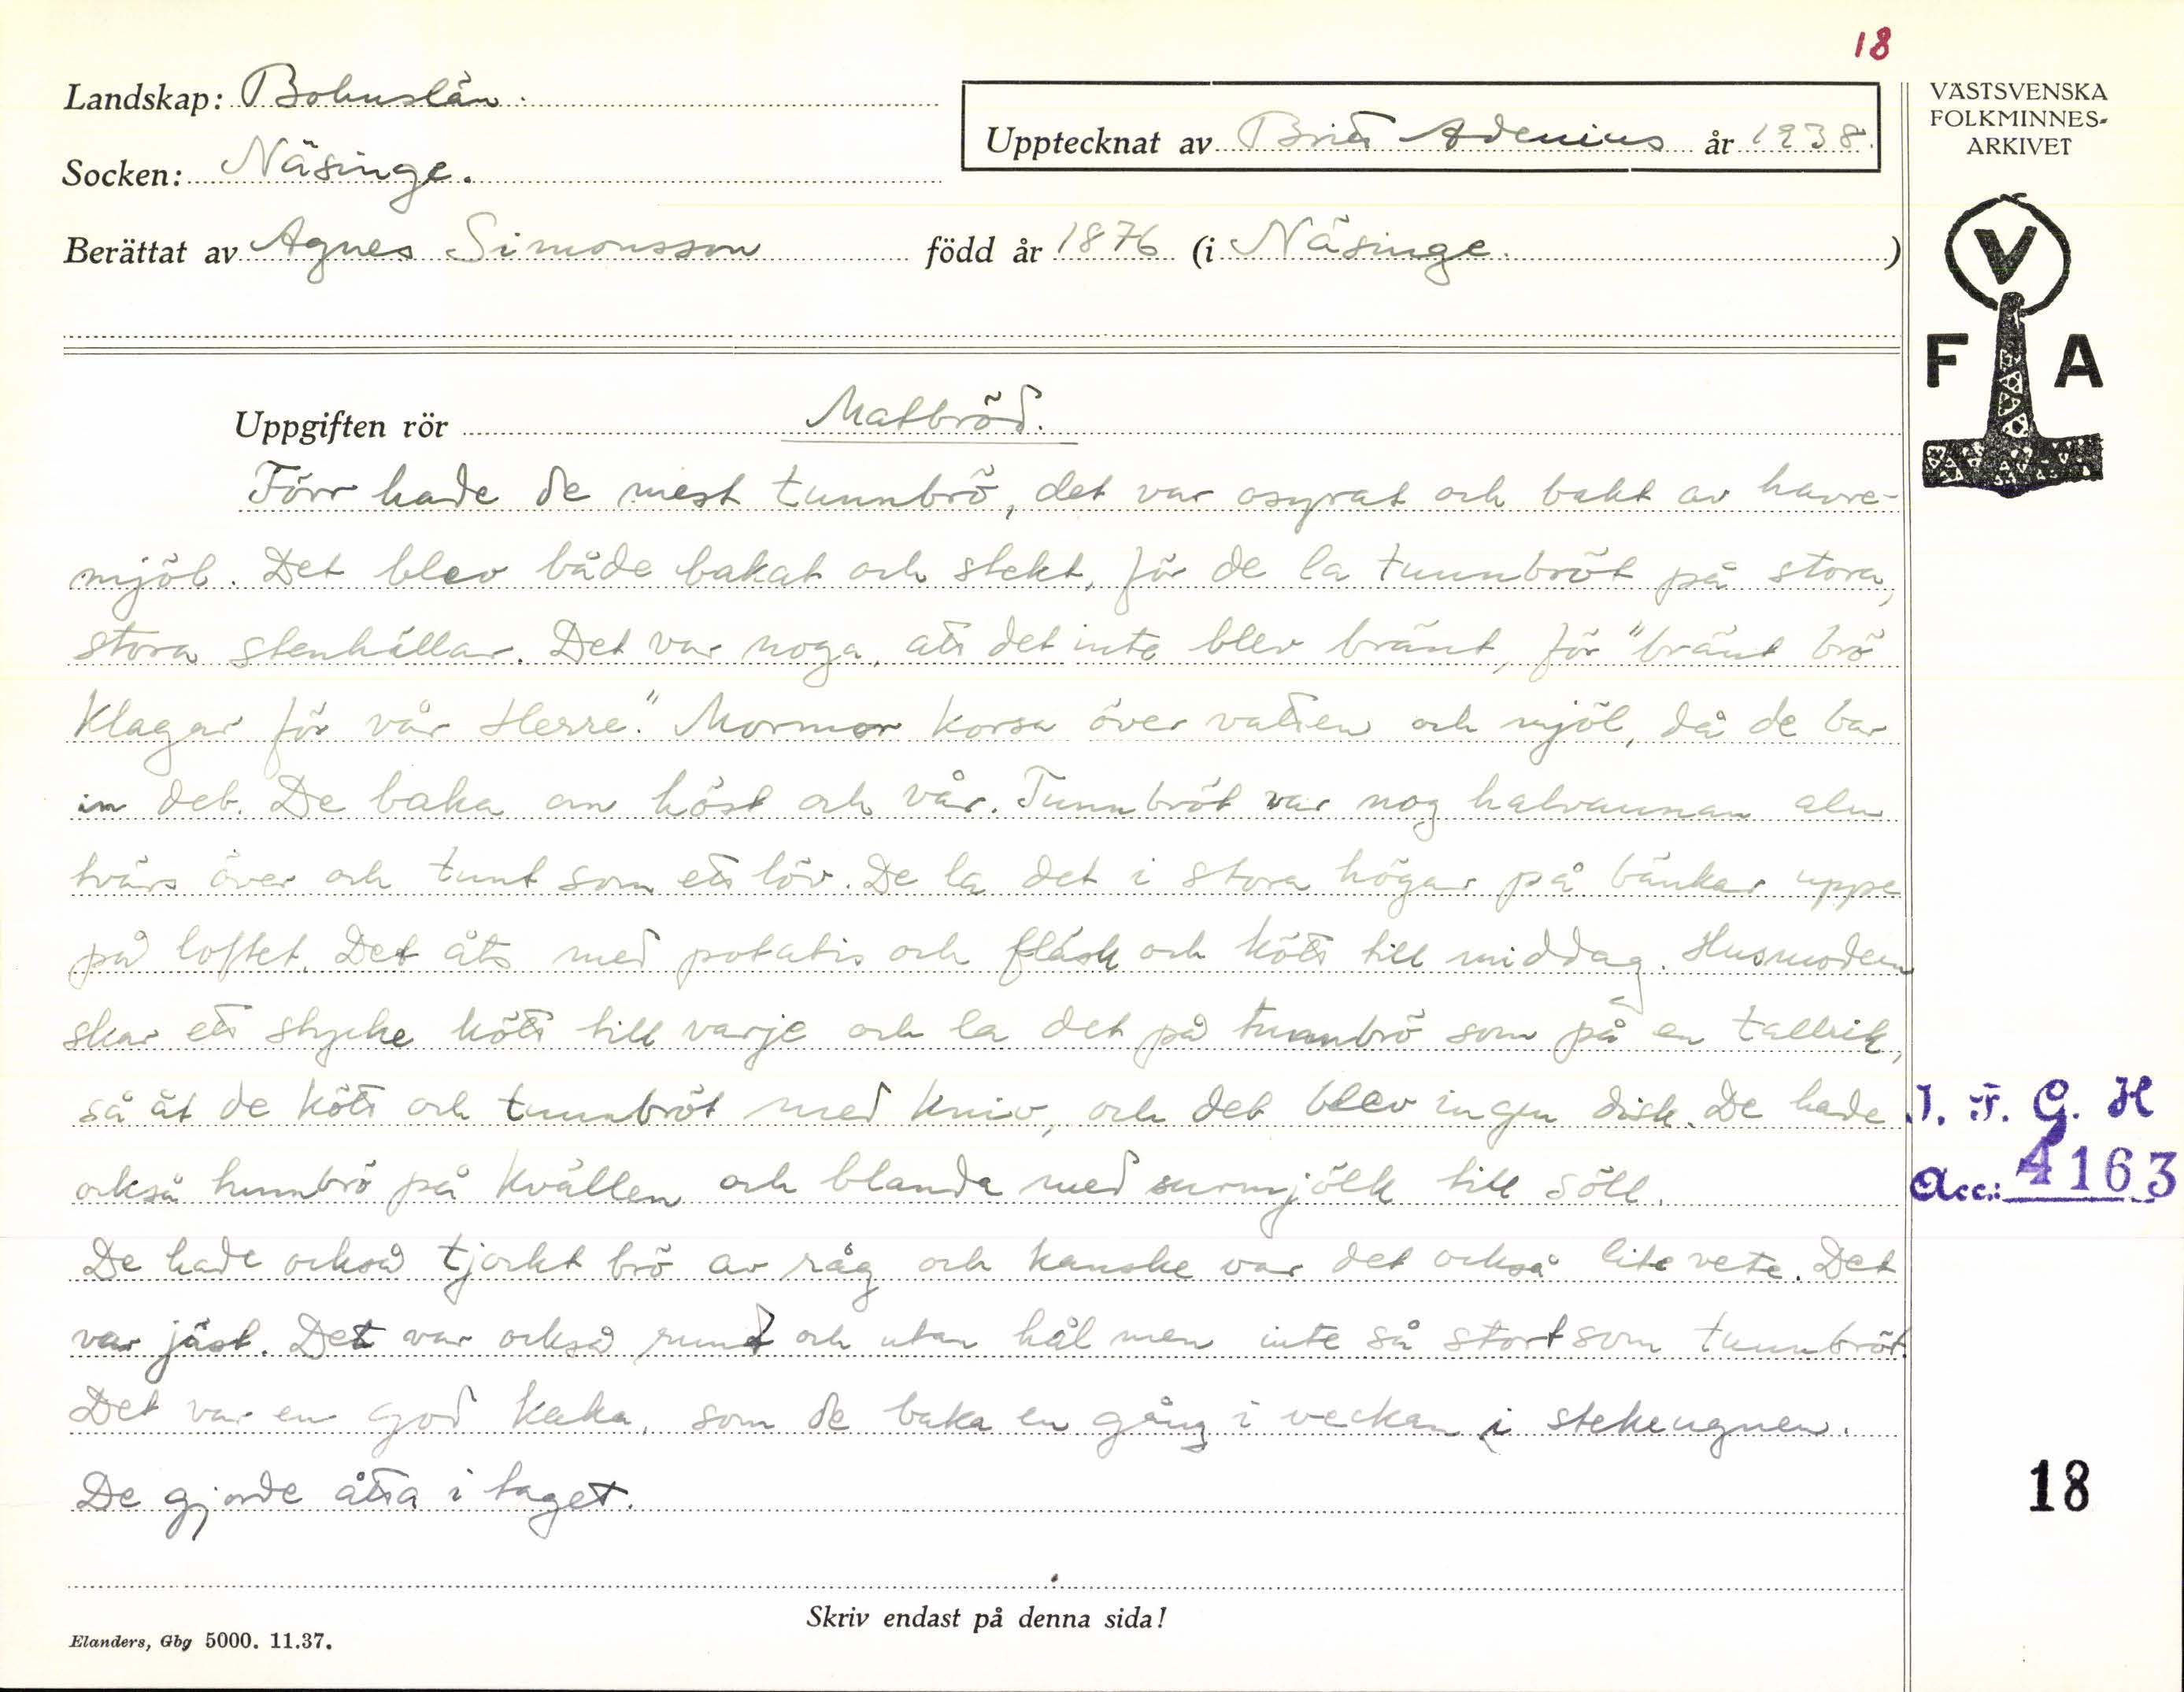 18
Landskap: Bohuslän.
Upptecknat av Britt Adenius år 1938.
VÄSTSVENSKA
FOLKMINNES-
ARKIVET
Socken: Näsinge.
Berättat av Agnes Simonsson född år 1876 (i Näsinge.)
V
F A
Uppgiften rör Matbröd.
Förr hade de mest tunnbrö, det var osyrat och bakt av havre-
mjöl. Det blev både bakat och stekt, för de la tunnbröt på stora,
stora stenhällar. Det var noga, att det inte blev bränt, för "bränt brö
klagar för vår Herre." Mormor korsa över vatten och mjöl, då de bar
in det. De baka om höst och vår. Tunnbröt var nog halvannan aln
tvärs över och tunt som ett löv. De la det i stora högar på bänkar uppe
på loftet. Det åts med potatis och fläsk och kött till middag. Husmodern
skar ett stycke kött till varje och la det på tunnbrö som på en tallrik,
så åt de kött och tunnbröt med kniv, och det blev ingen disk. De hade
också tunnbrö på kvällen och blanda med surmjölk till söll.
De hade också tjockt brö av råg och kanske var det också lite vete. Det
var jäst. Det var också runt och utan hål men inte så stort som tunnbröt.
Det var en god kaka, som de baka en gång i veckan i stekeugnen.
De gjorde åtta i taget.
I. F. G. H
Acc.: 4163
18
Skriv endast på denna sida!
Elanders, Gbg 5000. 11.37.